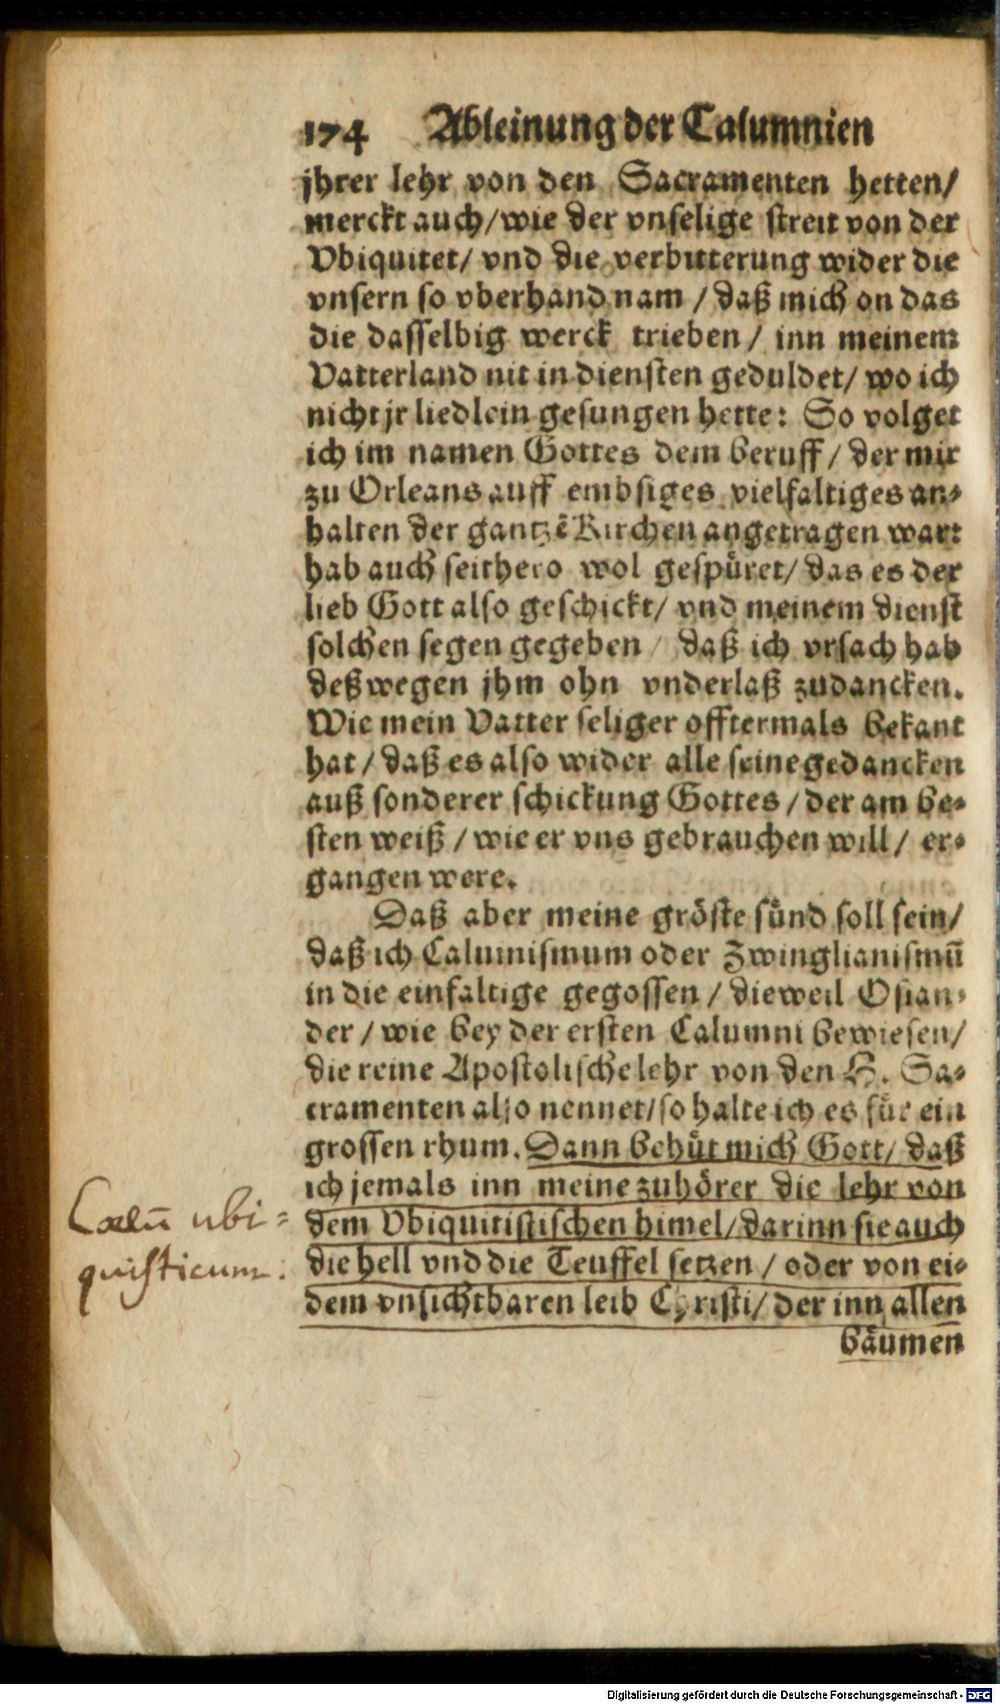 174 Ableinung der Calumnien
jhrer lehr von den Sacramenten hetten/
merckt auch/wie der vnselige streit von der
Vbiquitet/ vnd die verbitterung wider die
vnsern so vberhand nam / daß mich on das
die dasselbig werck trieben / inn meinem
Vatterland nit in diensten geduldet/ wo ich
nicht jr liedlein gesungen hette: So volget
ich im namen Gottes dem beruff / der mir
zu Orleans auff embsiges vielfaltiges an-
halten der gantzē Kirchen angetragen war:
hab auch seithero wol gespüret/ das es der
lieb Gott also geschickt/ vnd meinem dienst
solchen segen gegeben / daß ich vrsach hab
deßwegen jhm ohn vnderlaß zudancken.
Wie mein Vatter seliger offtermals bekant
hat / daß es also wider alle seine gedancken
auß sonderer schickung Gottes / der am be-
sten weiß / wie er vns gebrauchen will / er-
gangen were.
Daß aber meine gröste sünd soll sein/
daß ich Caluinismum oder Zwinglianismū
in die einfaltige gegossen / dieweil Osian-
der / wie bey der ersten Calumni bewiesen/
die reine Apostolische lehr von den H. Sa-
cramenten also nennet/so halte ich es für ein
grossen rhum. Dann behüt mich Gott/ daß
ich jemals inn meine zuhörer die lehr von
dem Vbiquitistischen himel/darinn sie auch
die hell vnd die Teuffel setzen / oder von ei-
dem vnsichtbaren leib Christi/ der inn allen
bäumen
Cœlū ubi=
quisticum.
Digitalisierung gefördert durch die Deutsche Forschungsgemeinschaft - DFG